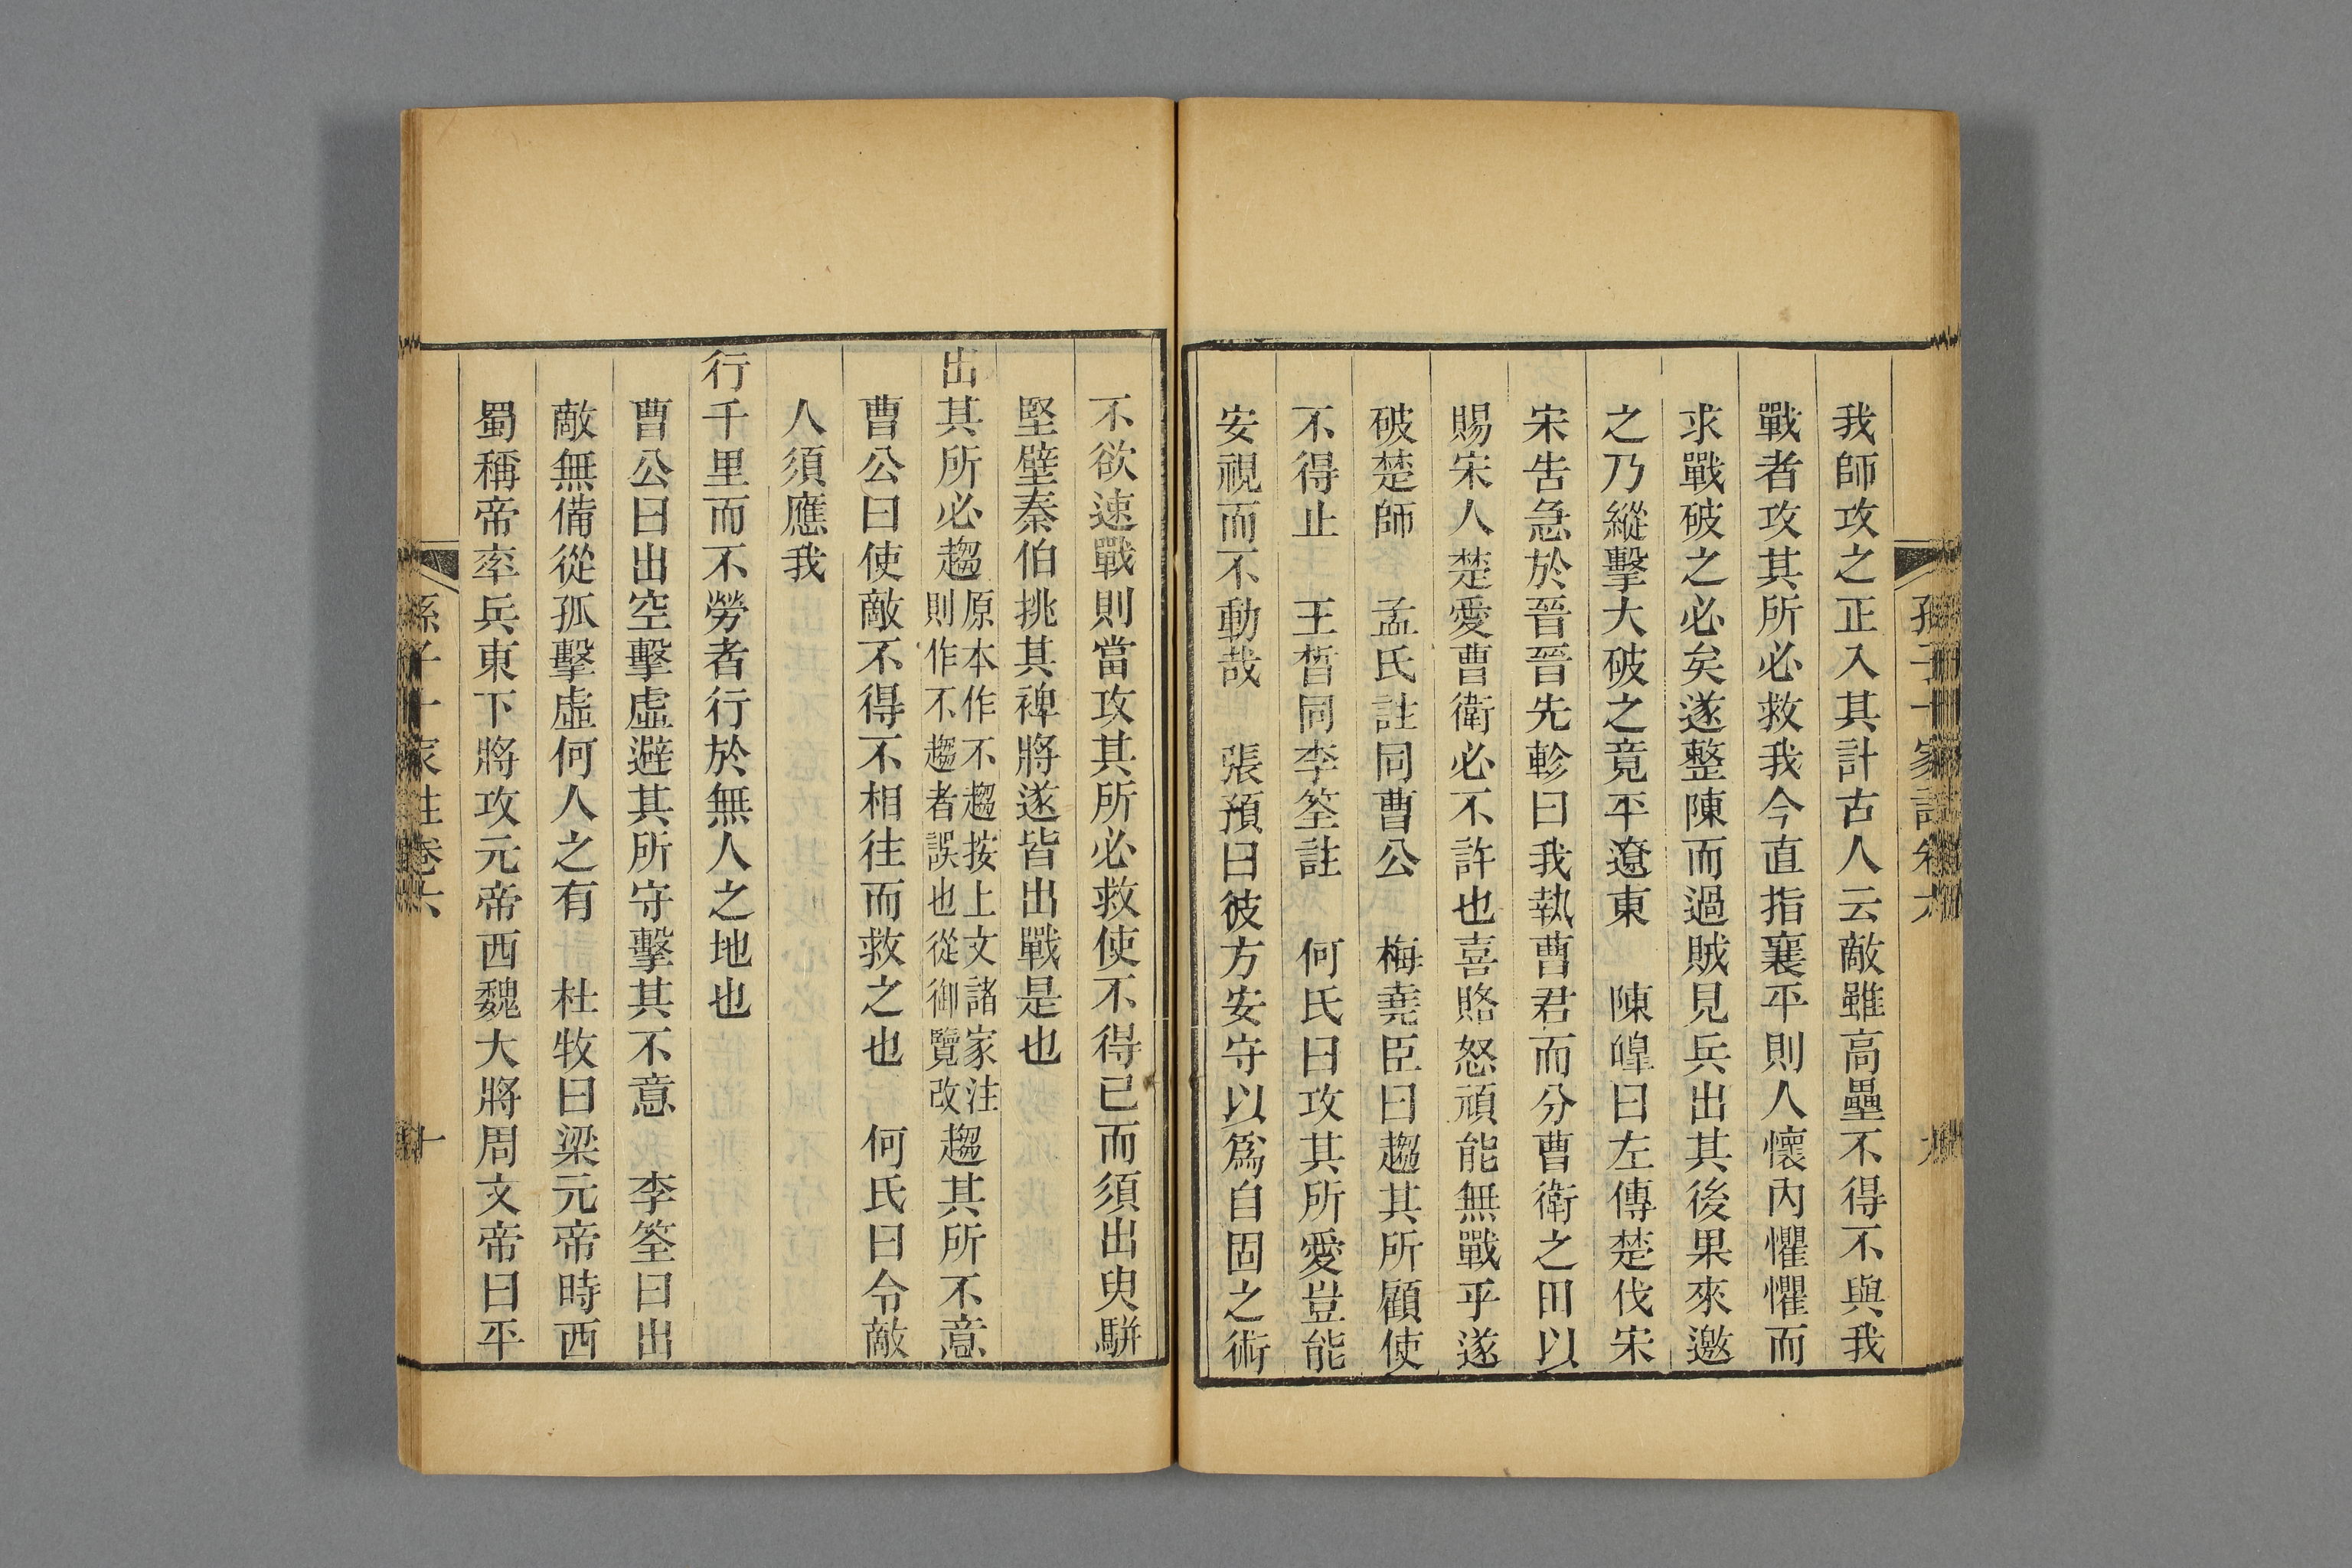 我師攻之正入其計古人云敵雖高壘不得不與我
戰者攻其所必救我今直指襄平則人懷內懼懼而
求戰破之必矣遂整陳而過賊見兵出其後果來邀
之乃縱擊大破之竟平遼東　陳皥曰左傳楚伐宋
宋吿急於晉晉先軫曰我執曹君而分曹衛之田以
賜宋人楚愛曹衛必不許也喜賂怒頑能無戰乎遂
破楚師　孟氏註同曹公　梅堯臣曰趨其所顧使
不得止　王晳同李筌註　何氏曰攻其所愛豈能
安視而不動哉　張預曰彼方安守以爲自固之術
不欲速戰則當攻其所必救使不得已而須出臾騈
堅壁秦伯挑其裨將遂皆出戰是也
出其所必趨原本作不趨按上文諸家注則作不趨者誤也從御覽改趨其所不意
曹公曰使敵不得不相往而救之也　何氏曰令敵
人須應我
行千里而不勞者行於無人之地也
曹公曰出空擊虛避其所守擊其不意　李筌曰出
敵無備從孤擊虛何人之有　杜牧曰梁元帝時西
蜀稱帝率兵東下將攻元帝西魏大將周文帝曰平
孫子十家註卷六　十